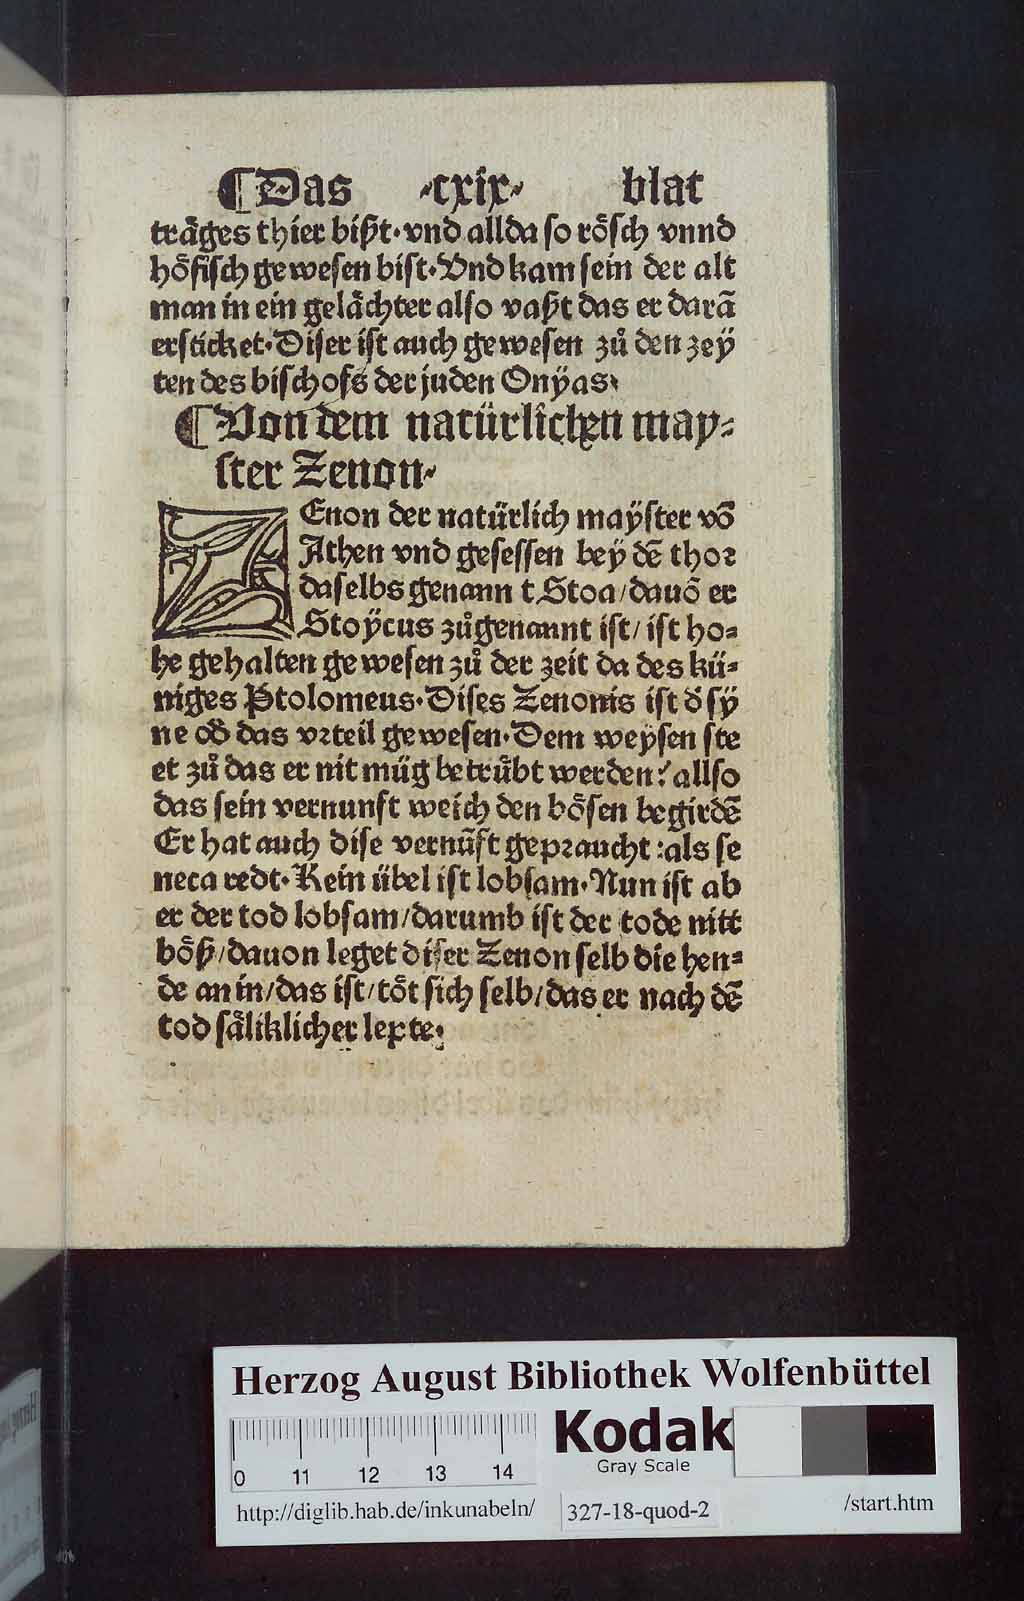 ¶Das ·cxix· blat
träges thier bißt·vnd allda so rösch vnnd
höfisch gewesen bist·Vnd kam sein der alt
man in ein gelächter also vaßt das er darā
ersticket·Diser ist auch gewesen zů den zeÿ
ten des bischofs der juden Onÿas·
¶Von dem natürlichen may-
ster Zenon·
ZEnon der natürlich maÿster vō
Athen vnd gesessen beÿ dē thor
daselbs genann t Stoa/dauō er
Stoÿcus zůgenannt ist/ist ho-
he gehalten gewesen zů der zeit da des kü-
niges Ptolomeus·Dises Zenonis ist d̕ sÿ
ne od̕ das vrteil gewesen·Dem weÿsen ste
et zů das er nit müg betrůbt werden:allso
das sein vernunft weich den bösen begirdē
Er hat auch dise vernūft gepraucht:als se
neca redt·Kein übel ist lobsam·Nun ist ab
er der tod lobsam/darumb ist der tode nitt
böß/dauon leget diser Zenon selb die hen-
de an in/das ist/töt sich selb/das er nach dē
tod säliklicher lepte·
Herzog August Bibliothek Wolfenbüttel
0 11 12 13 14
Kodak
Gray Scale
http://diglib.hab.de/inkunabeln/ 327-18-quod-2 /start.htm